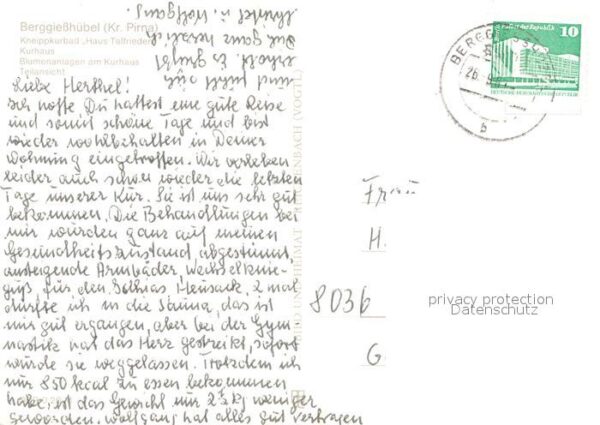 Berggießhübel (Kr. Pirna)
Kneippkurbad „Haus Talfrieden“
Kurhaus
Blumenanlagen am Kurhaus
Teilansicht
Liebe Herthel!
Ich hoffe Du hattest eine gute Reise
und somit schöne Tage und bist
wieder wohlbehalten in Deiner
Wohnung eingetroffen. Wir verleben
leider auch schon wieder die letzten
Tage unserer Kur. Sie ist uns sehr gut
bekommen. Die Behandlungen bei
mir wurden ganz auf meinen
Gesundheitszustand abgestimmt,
ansteigende Armbäder, Wechselknie-
güß für den 2 mal
durfte ich in die Sauna, das ist
mir gut ergangen, aber bei der Gym-
nastik hat das Herz gestreikt, sofort
wurde sie weggelassen. Trotzdem ich
nur 850 kcal zu essen bekommen
habe, ist das Gewicht nur 2½ kg weniger
geworden. Wolfgang hat alles gut vertragen
und
erholt. Es grüßt
Dich ganz herzlich
u. Wolfgang
BILD UND HEIMAT REICHENBACH (VOGTL)
Palast der Republik
10
DEUTSCHE DEMOKRATISCHE REPUBLIK
b
Frau
H.
8036
G
privacy protection
Datenschutz